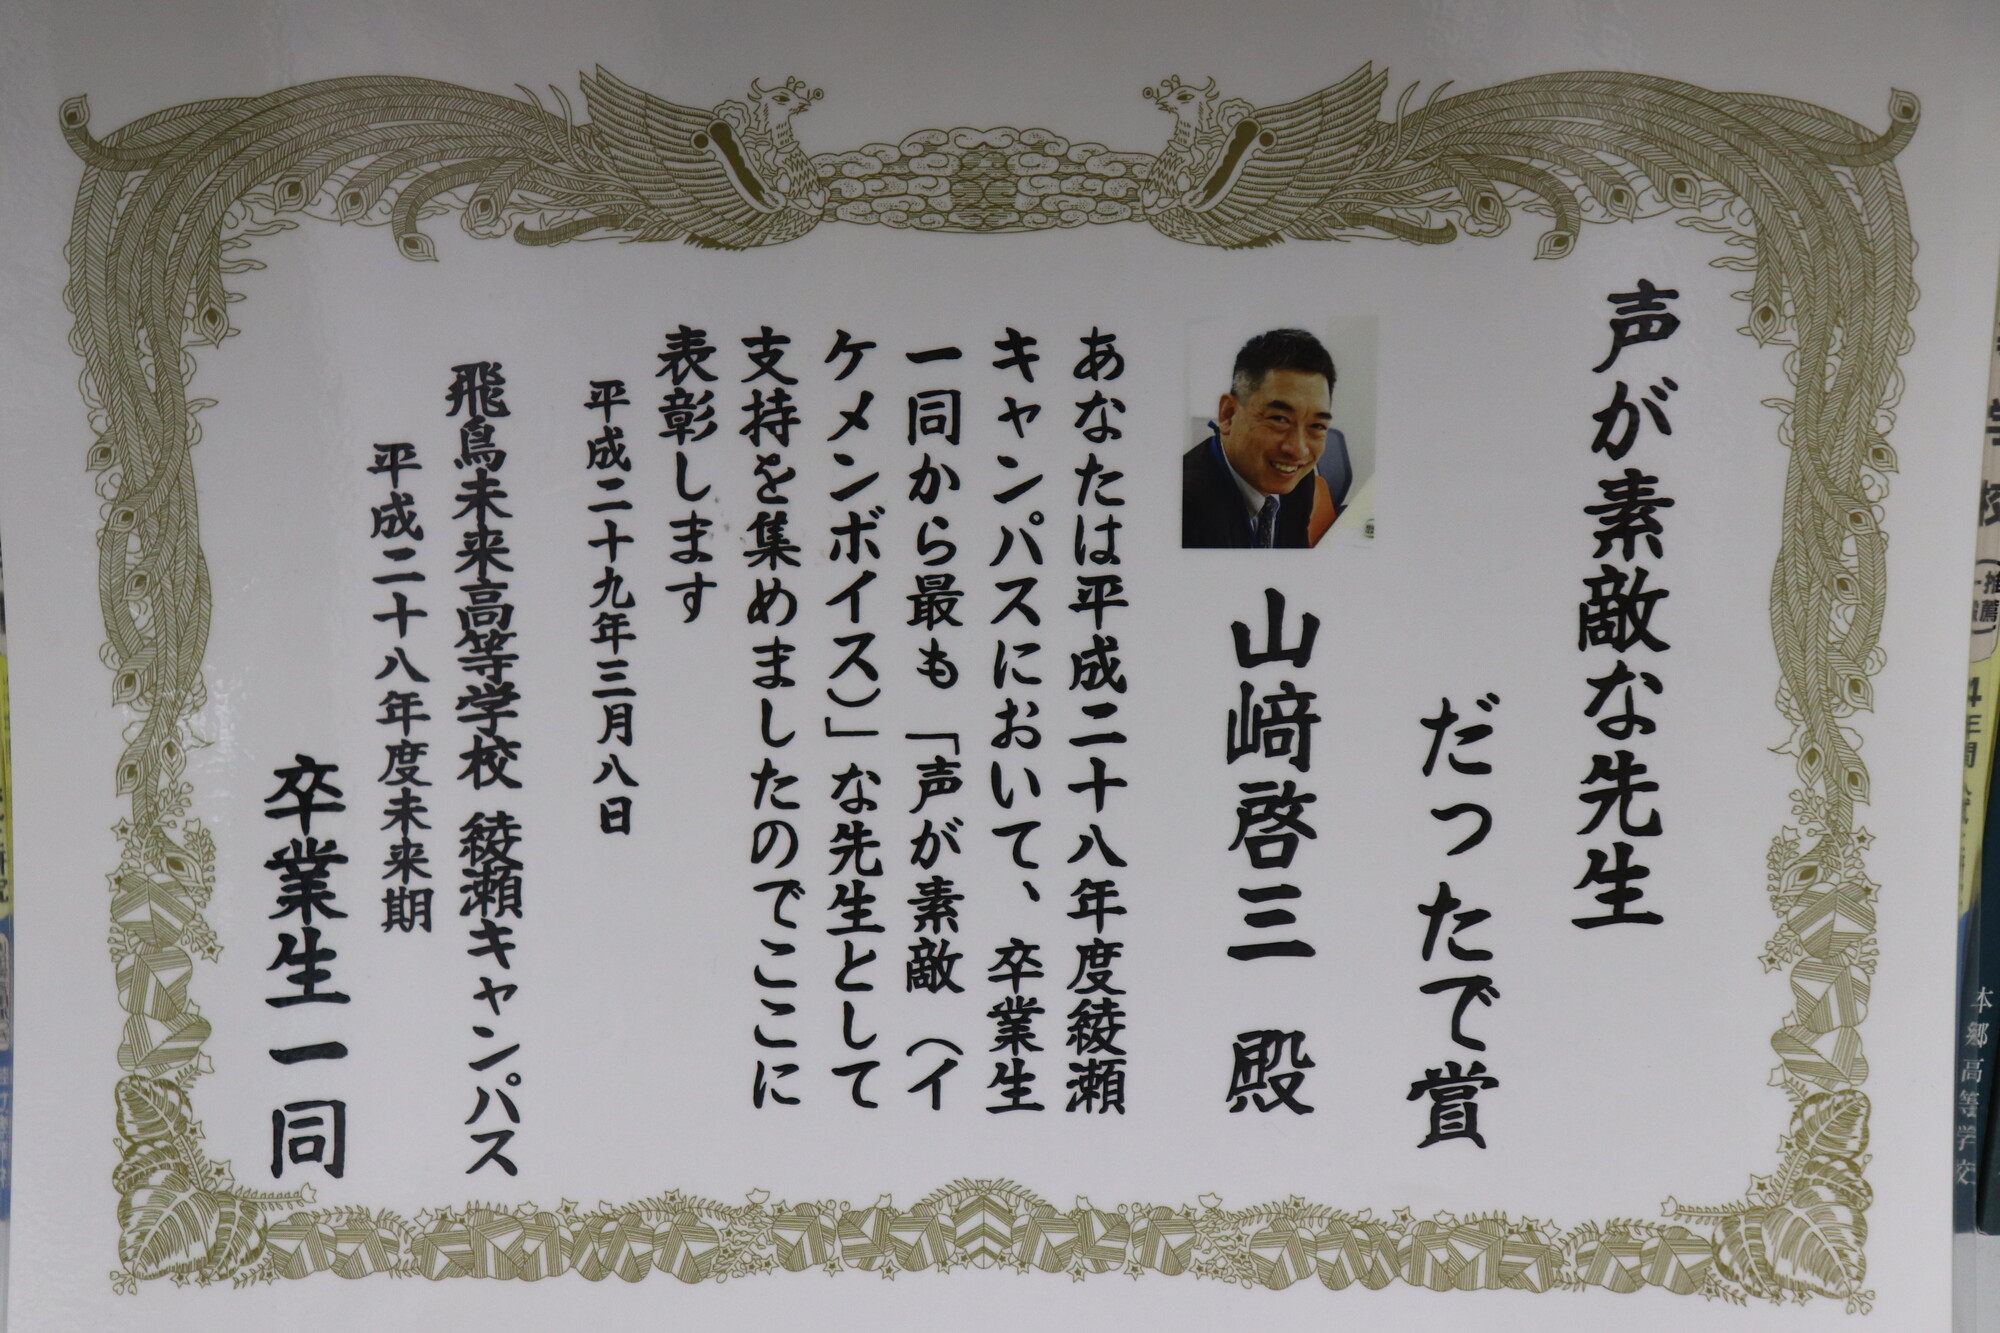 声が素敵な先生
だったで賞
山﨑啓三 殿
あなたは平成二十八年度綾瀬
キャンパスにおいて、卒業生
一同から最も「声が素敵（イ
ケメンボイス）」な先生として
支持を集めましたのでここに
表彰します
平成二十九年三月八日
飛鳥未来高等学校 綾瀬キャンパス
平成二十八年度未来期
卒業生一同
本郷高等学校